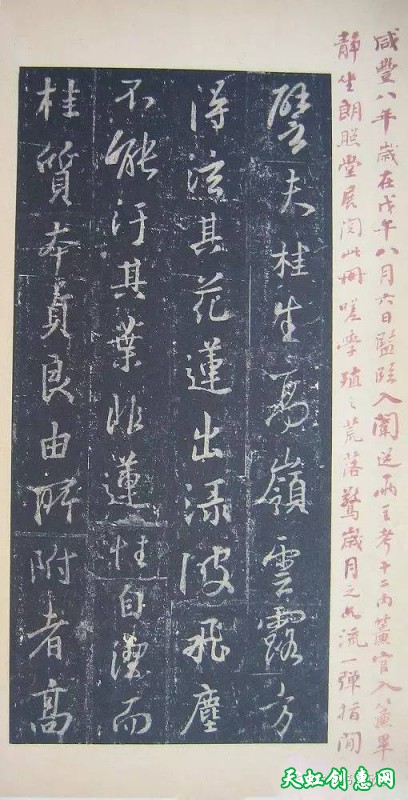 咸豐八年歲在戊午八月六日監臨入闈送兩主考十二內簾官入簾畢
靜坐朗照堂展閱此冊嗟學殖之荒落驚歲月之如流一彈指間
譬夫桂生高嶺雲露方
得泫其花蓮出淥波飛塵
不能汙其葉非蓮性自潔而
桂質本貞良由所附者高
天虹创意网